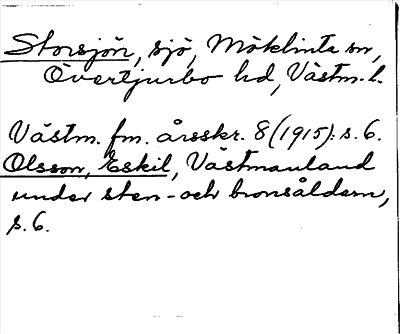 Storsjön, sjö, Möklinta sn,
Övertjurbo hd, Västm. l.
Västm. fm. årsskr. 8 (1915): s. 6.
Olsson, Eskil, Västmanland
under sten- och bronsåldern,
s. 6.